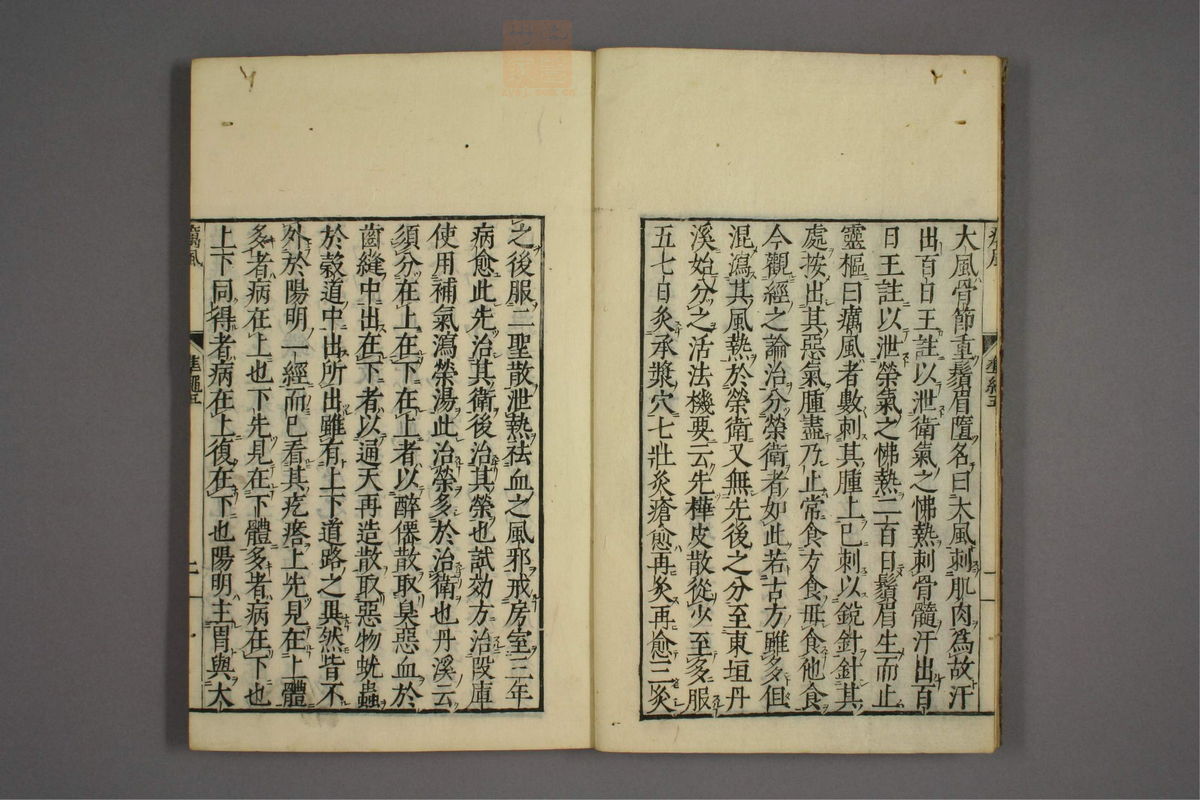 大風骨節重鬚眉墮名曰大風刺肌肉為故汗
出百日王註以泄衛氣之怫熱刺骨髓汗出百
日王註以泄榮氣之怫熱二百日鬚眉生而止
靈樞曰癘風者數刺其腫上已刺以銳針針其
處按出其惡氣腫盡乃止常食方食毋食他食
今觀經之論治分榮衛者如此若古方雖多但
混瀉其風熱於榮衛又無先後之分至東垣丹
溪始分之活法機要云先樺皮散從少至多服
五七日灸承漿穴七壯灸瘡愈再灸再愈三灸
之後服二聖散泄熱祛血之風邪戒房室三年
病愈此先治其衛後治其榮也試効方治段庫
使用補氣瀉榮湯此治榮多於治衛也丹溪云
須分在上在下在上者以醉僊散取臭惡血於
齒縫中出在下者以通天再造散取惡物蚘蟲
於穀道中出所出雖有上下道路之異然皆不
外於陽明一經而已看其疙瘩上先見在上體
多者病在上也下先見在下體多者病在下也
上下同得者病在上復在下也陽明主胃與大
癘風
準繩五
二